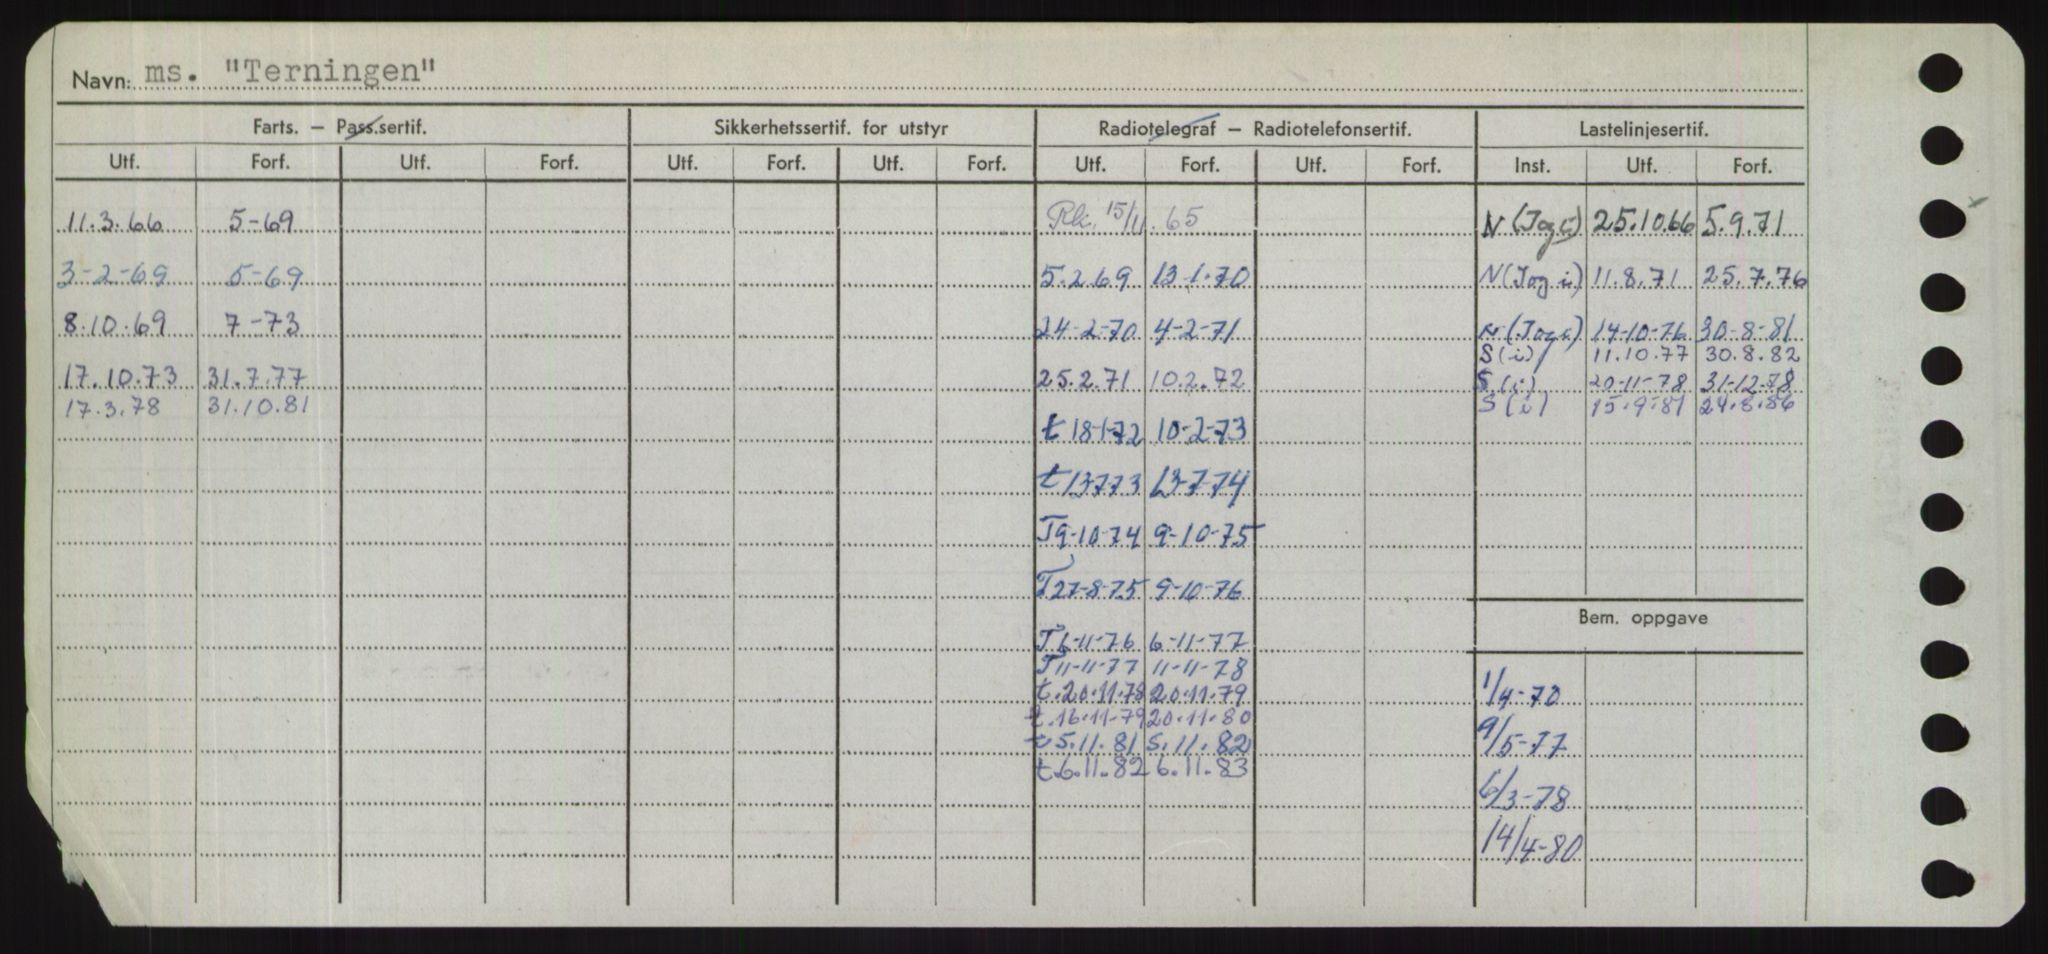 Navn: ms. "Terningen"
Farts. – Pass.sertif. Sikkerhetssertif. for utstyr Radiotelegraf – Radiotelefonsertif. Lastelinjesertif.
Utf. Forf. Utf. Forf. Utf. Forf. Utf. Forf. Utf. Forf. Utf. Forf. Inst. Utf. Forf.
11.3.66 5-69 Rk. 15/11.65 N (I og i) 25.10.66 5.9.71
3-2-69 5-69 5.2.69 13-1-70 N (I og i) 11.8.71 25.7.76
8.10.69 7-73 24-2-70 4-2-71 N (I og i) 14-10-76 30-8-81
S (i) 11.10.77 30.8.82
17.10.73 31.7.77 25.2.71 10.2.72 S (i) 20-11-78 31-12-78
17.3.78 31.10.81 S (i) 15.9.81 24.8.86
t 18-1-72 10-2-73
t 13-7-73 13-7-74
T 9-10-74 9-10-75
T 27-8-75 9-10-76
Bem. oppgave
T 6-11-76 6-11-77
T 11-11-77 11-11-78
t. 20.11.78 20.11.79 1/4-70
t. 16.11.79 20.11.80
t 5.11.81 5.11.82 9/5-77
t. 6.11.82 6.11.83
6/3-78
14/4-80